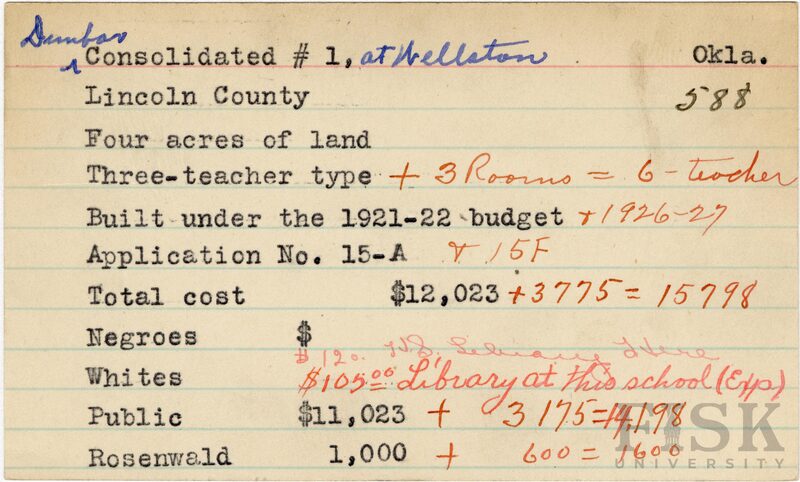 Dunbar
^ Consolidated # 1, at Wellston Okla.
Lincoln County 588
Four acres of land
Three-teacher type + 3 Rooms = 6 - teacher
Built under the 1921-22 budget + 1926-27
Application No. 15-A + 15F
Total cost $12,023 + 3775 = 15798
Negroes $
$120. H.S. Library Here
Whites $105.00 Library at this school (Exp)
Public $11,023 + 3175 = 14,198
Rosenwald 1,000 + 600 = 1600
FISK
UNIVERSITY